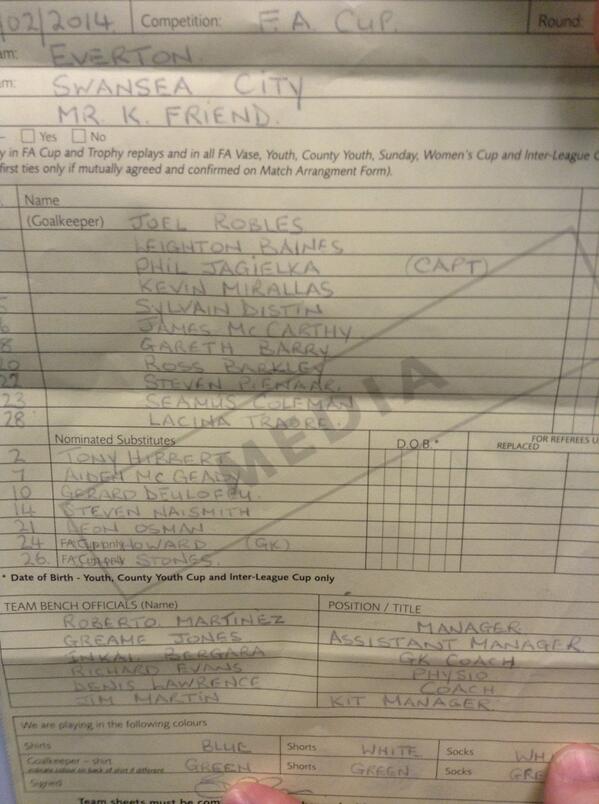 02/2014. Competition: F.A. CUP. Round:
am: EVERTON.
m: SWANSEA CITY
MR. K. FRIEND.
Yes No
y in FA Cup and Trophy replays and in all FA Vase, Youth, County Youth, Sunday, Women's Cup and Inter-League C
first ties only if mutually agreed and confirmed on Match Arrangment Form).
Name
(Goalkeeper) JOEL ROBLES
LEIGHTON BAINES
PHIL JAGIELKA (CAPT)
KEVIN MIRALLAS
5 SYLVAIN DISTIN
6 JAMES McCARTHY
8 GARETH BARRY
20 ROSS BARKLEY
22 STEVEN PIENAAR.
23 SEAMUS COLEMAN
28 LACINA TRAORE.
MEDIA
Nominated Substitutes D.O.B.* REPLACED FOR REFEREES U
2 TONY HIBBERT
7 AIDEN McGEADY
10 GERARD DEULOFEU.
14 STEVEN NAISMITH
21 LEON OSMAN
24 FA Cup only HOWARD (GK)
26. FA Cup only STONES.
* Date of Birth - Youth, County Youth Cup and Inter-League Cup only
TEAM BENCH OFFICIALS (Name) POSITION / TITLE
ROBERTO MARTINEZ MANAGER
GREAME JONES ASSISTANT MANAGER
INKAI BERGARA GK COACH
RICHARD EVANS PHYSIO
DENIS LAWRENCE COACH
JIM MARTIN KIT MANAGER
We are playing in the following colours
Shirts BLUE Shorts WHITE Socks WH
Goalkeeper - shirt GREEN Shorts GREEN Socks GRE
indicate colour on back of shirt if different
Signed
Team sheets must be com